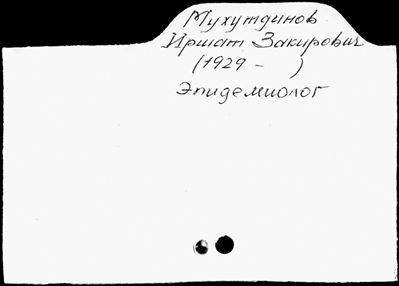 Мухутдинов
Иршат Закирович
(1929 -    )
Эпидемиолог